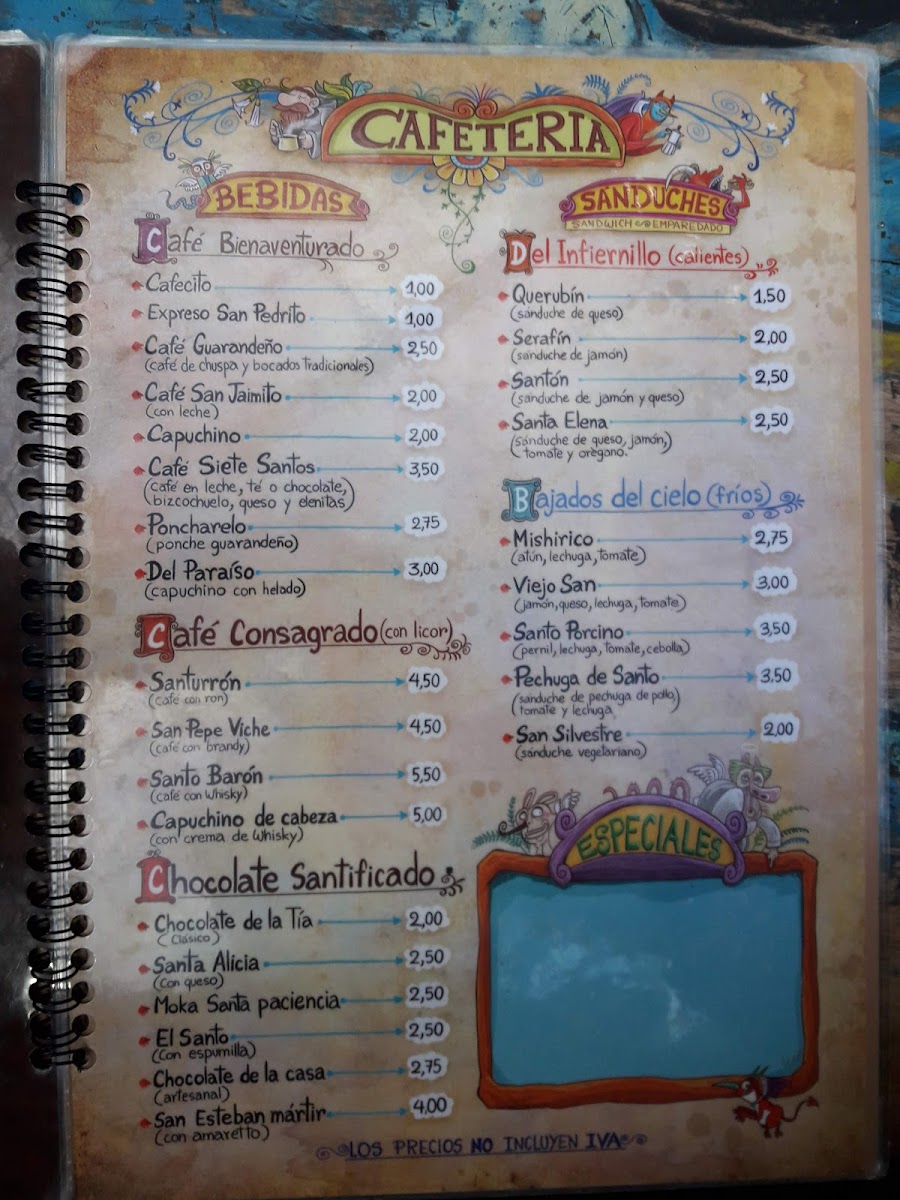 CAFETERIA
BEBIDAS
Café Bienaventurado
Cafecito 1,00
Expreso San Pedrito 1,00
Café Guarandeño 2,50
(café de chuspa y bocados tradicionales)
Café San Jaimito 2,00
(con leche)
Capuchino 2,00
Café Siete Santos 3,50
(café en leche, té o chocolate,
bizcochuelo, queso y elenitas)
Poncharelo 2,75
(ponche guarandeño)
Del Paraíso 3,00
(capuchino con helado)
Café Consagrado (con licor)
Santurrón 4,50
(café con ron)
San Pepe Viche 4,50
(café con brandy)
Santo Barón 5,50
(café con whisky)
Capuchino de cabeza 5,00
(con crema de whisky)
Chocolate Santificado
Chocolate de la Tía 2,00
(Clásico)
Santa Alicia 2,50
(con queso)
Moka Santa paciencia 2,50
El Santo 2,50
(con espumilla)
Chocolate de la casa 2,75
(artesanal)
San Esteban mártir 4,00
(con amaretto)
SANDUCHES
SANDWICH EMPAREDADO
Del Infiernillo (calientes)
Querubín 1,50
(sánduche de queso)
Serafín 2,00
(sanduche de jamón)
Santón 2,50
(sanduche de jamón y queso)
Santa Elena 2,50
(sánduche de queso, jamón,
tomate y orégano.
Bajados del cielo (fríos)
Mishirico 2,75
(atún, lechuga, tomate)
Viejo San 3,00
(jamón, queso, lechuga, tomate)
Santo Porcino 3,50
(pernil, lechuga, tomate, cebolla)
Pechuga de Santo 3,50
(sanduche de pechuga de pollo)
tomate y lechuga
San Silvestre 2,00
(sánduche vegetariano)
ESPECIALES
LOS PRECIOS NO INCLUYEN IVA